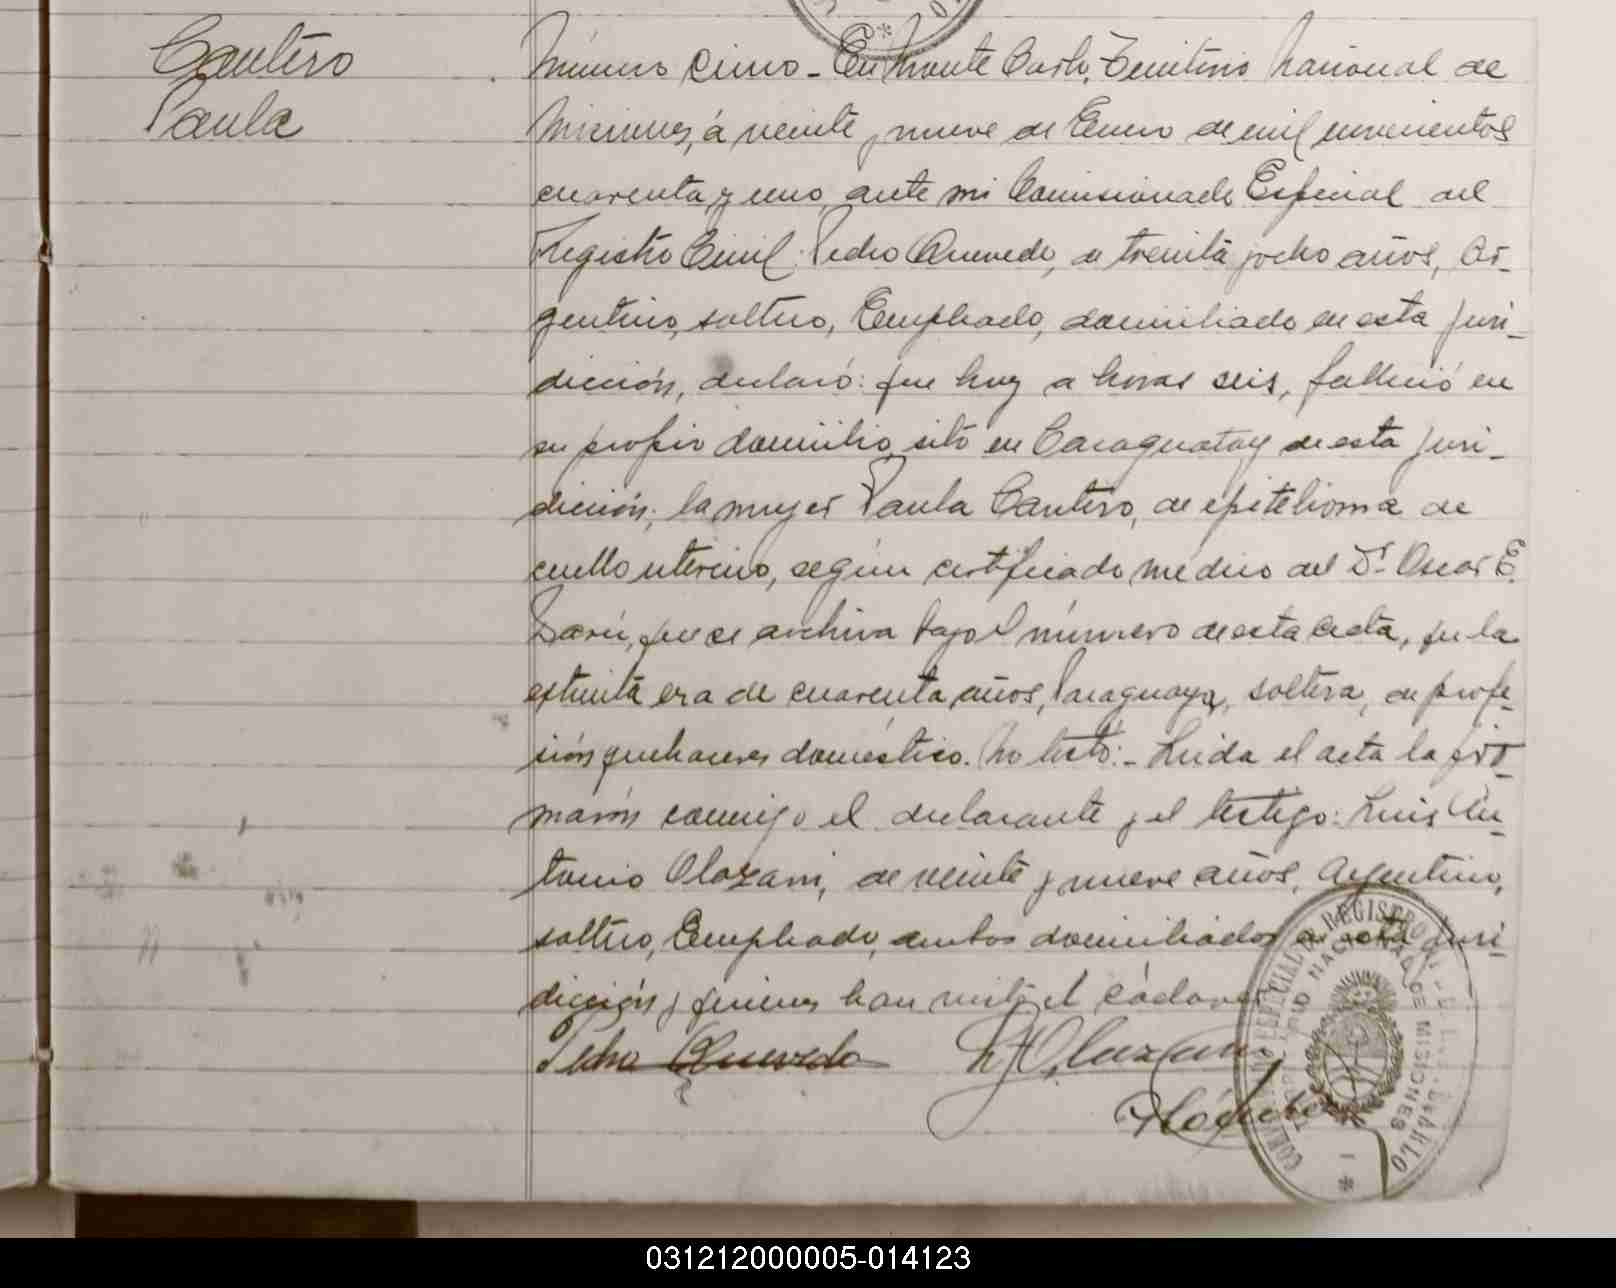 Cantero
Paula
Número Cinco - En Monte Carlo, Territorio Nacional de
Misiones, á veinte y nueve de Enero de mil novecientos
cuarenta y uno, ante mi Comisionado Especial del
Registro Civil: Pedro Quevedo, de treinta y ocho años, Ar-
gentino, soltero, Empleado, domiciliado en esta juri-
dicción, declaró: que hoy a horas seis, falleció en
su propio domicilio sito en Caraguatay de esta juri-
dicción, la mujer Paula Cantero, de epitelioma de
cuello uterino, según certificado médico del Dr. Oscar E.
que se archiva bajo el número de esta acta, que la
extinta era de cuarenta años, Paraguaya, soltera, de profe-
sión quehaceres doméstico. No testó:- Leida el acta la fir-
marón conmigo el declarante y el testigo: Luis An-
tonio Olozani, de veinte y nueve años, Argentino,
soltero, Empleado, ambos domiciliados en esta juri
dicción y quienes han visto el cadaver
Pedro Quevedo
REGISTRO
MISIONES
031212000005-014123